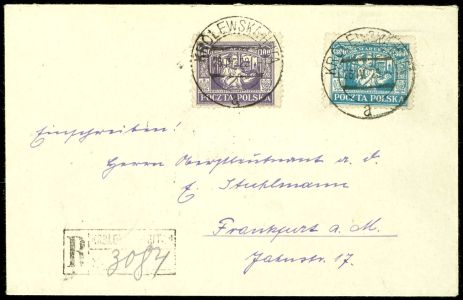 KRÓLEWSKA HUTA
POCZTA POLSKA
KRÓLEWSKA HUTA
POCZTA POLSKA
a
Einschreiben!
Herrn Oberstleutnant a. d.
E. Stuhlmann
Frankfurt a. M.
Jahnstr. 17.
R
3084